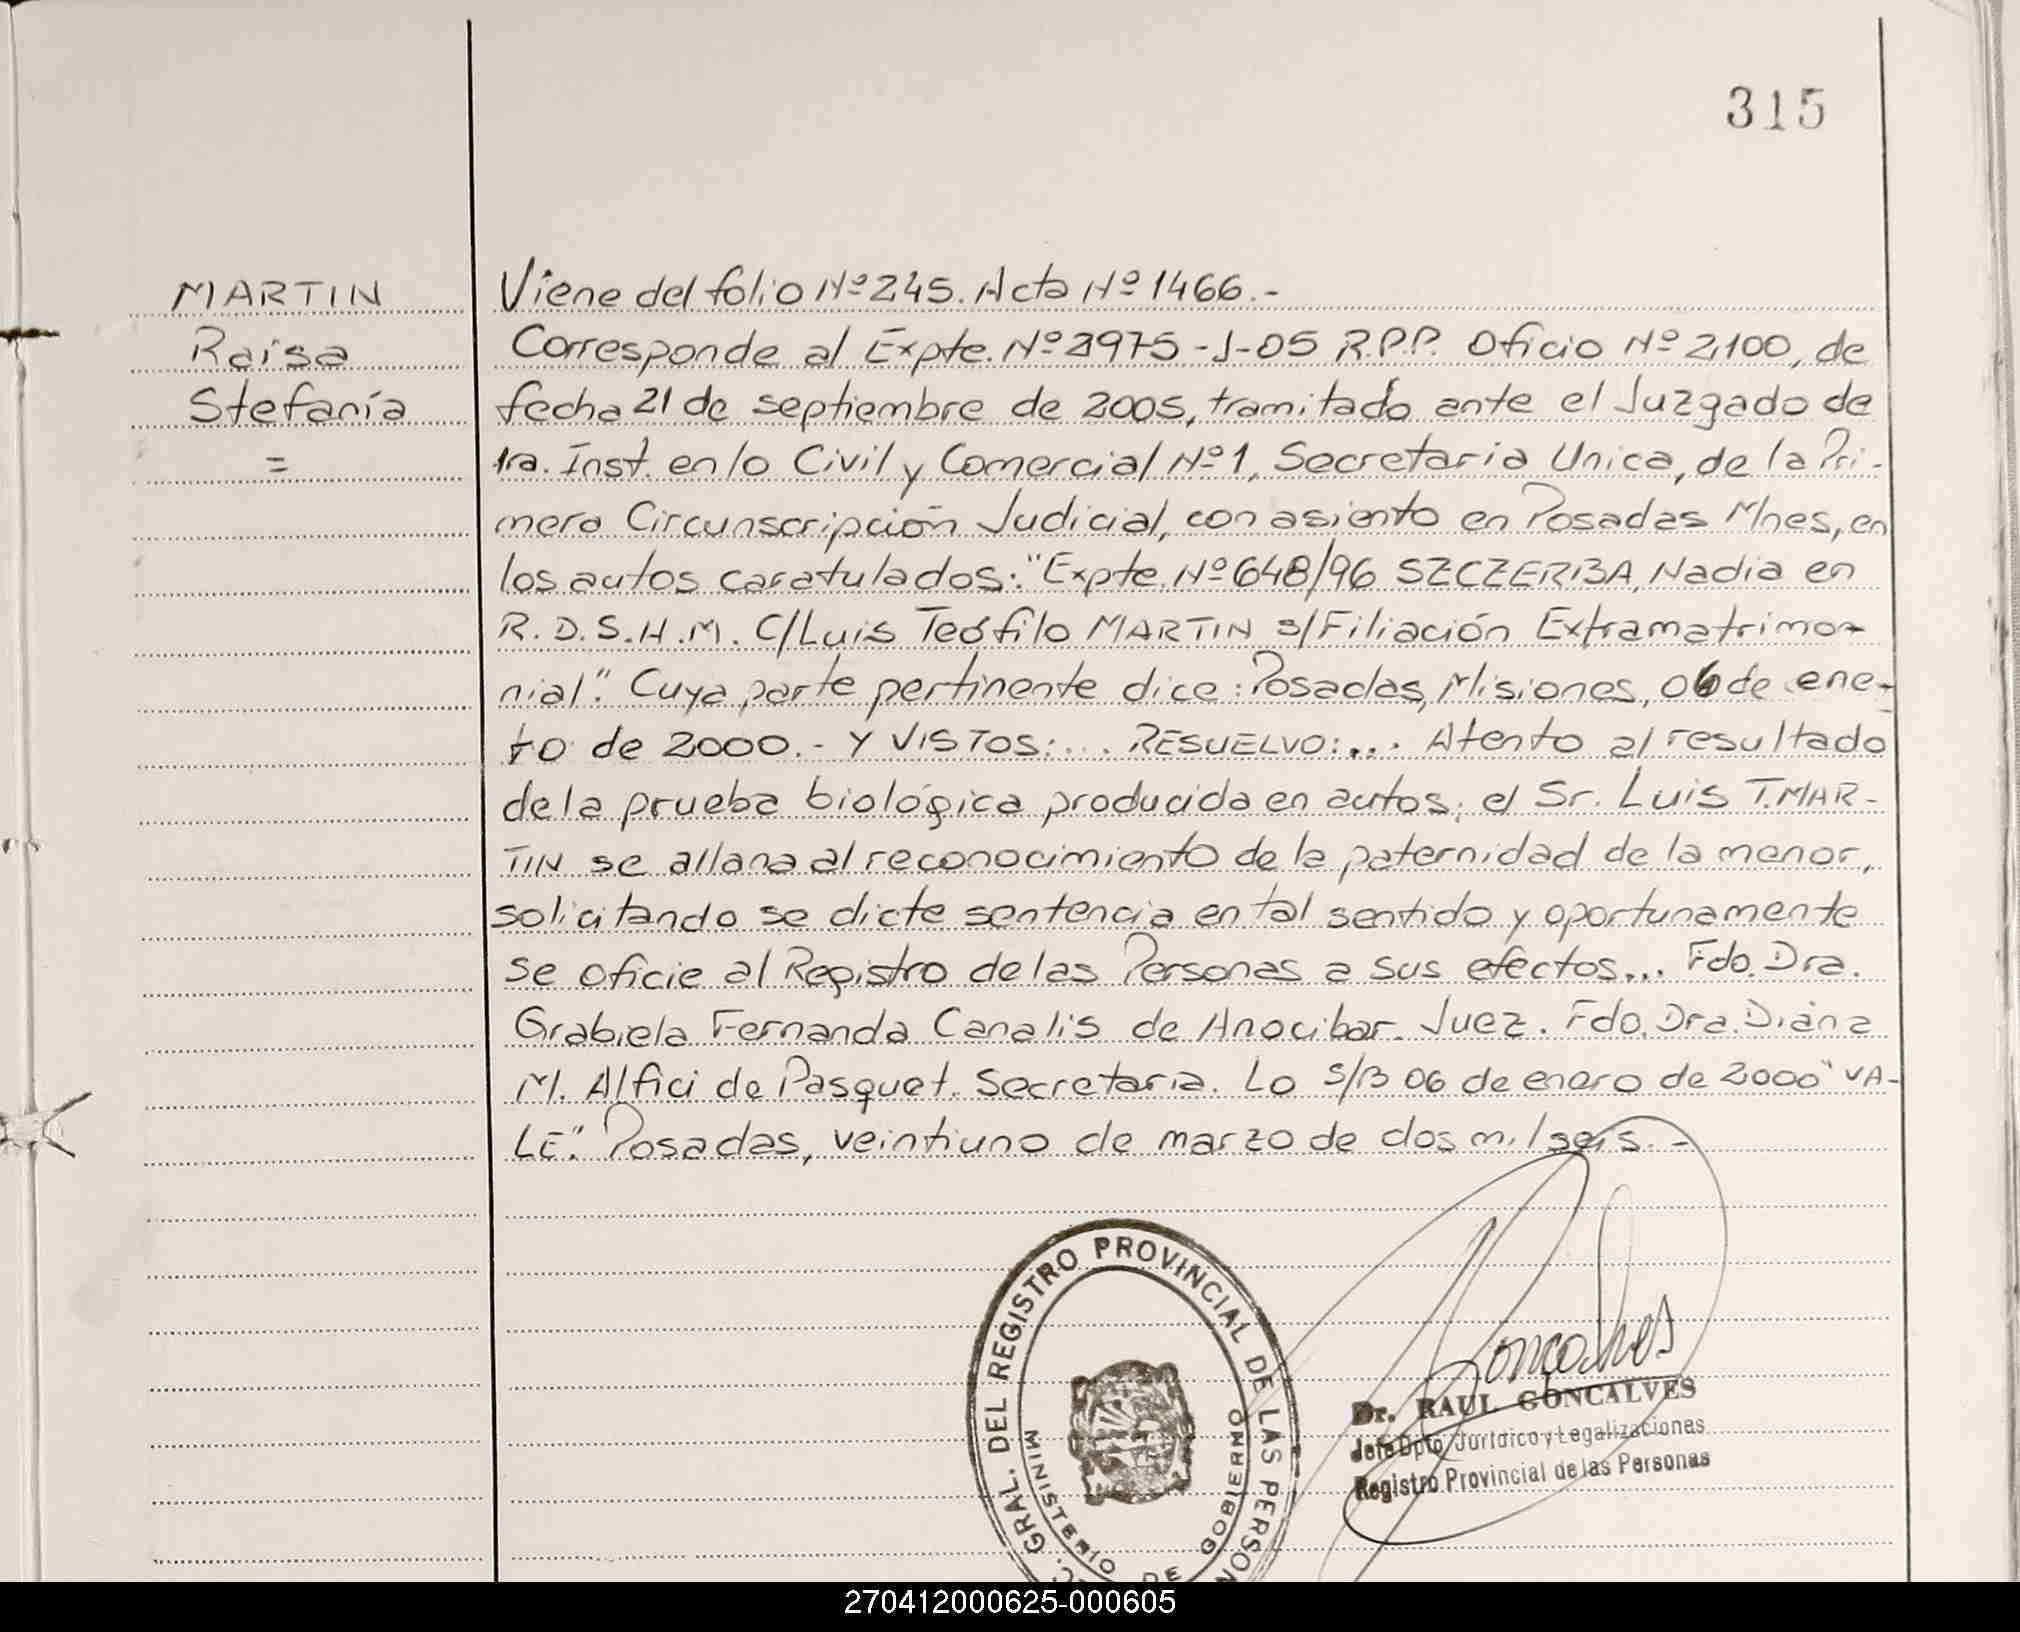 315
MARTIN
Raisa
Stefanía
=
Viene del folio Nº 245. Acta Nº 1466.-
Corresponde al Expte. Nº 2975-J-05 R.P.P. Oficio Nº 2,100, de
fecha 21 de septiembre de 2005, tramitado ante el Juzgado de
1ra. Inst. en lo Civil y Comercial Nº 1, Secretaria Unica, de la Pri-
mera Circunscripción Judicial, con asiento en Posadas Mnes, en
los autos caratulados: "Expte. Nº 648/96 SZCZERBA, Nadia en
R.D.S.H.M. C/Luis Teófilo MARTIN s/Filiación Extramatrimo-
nial". Cuya parte pertinente dice: Posadas, Misiones, 06 de ene-
ro de 2000.- Y VISTOS:... RESUELVO:... Atento al resultado
de la prueba biológica producida en autos; el Sr. Luis T. MAR-
TIN se allana al reconocimiento de la paternidad de la menor,
solicitando se dicte sentencia en tal sentido y oportunamente
se oficie al Registro de las Personas a sus efectos... Fdo. Dra.
Grabiela Fernanda Canalis de Anocibar. Juez. Fdo. Dra. Diana
M. Alfici de Pasquet. Secretaria. Lo S/B 06 de enero de 2000" VA-
LE". Posadas, veintiuno de marzo de dos mil seis.-
GRAL. DEL REGISTRO PROVINCIAL DE LAS PERSON
MINISTERIO DE GOBIERNO
Gonçalves
Dr. RAUL GONCALVES
Jefe Dpto. Jurídico y Legalizaciones
Registro Provincial de las Personas
270412000625-000605